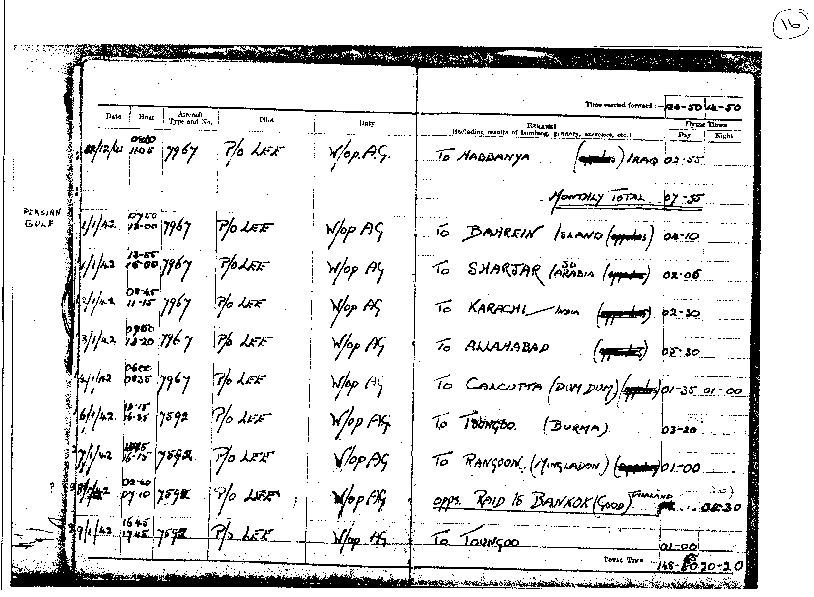 16
Time carried forward :— 
Date Hour Aircraft Type and No. Pilot Duty Remarks (Including results of bombing, gunnery, exercises, etc.) Flying Times Day Night
7967 P/O LEE W/op. AG. TO HABBANYA IRAQ 02-55
MONTHLY TOTAL 07-55
PERSIAN GULF
1/1/42 7967 P/O LEE W/op AG TO BAHREIN ISLAND 04-10
1/1/42 7967 P/O LEE W/op AG TO SHARJAR ARABIA 02-05
11-15 7967 P/O LEE W/op AG TO KARACHI INDIA 02-30
3/1/42 7967 P/O LEE W/op AG TO ALLAHABAD 05-30
7967 P/O LEE W/op AG TO CALCUTTA (DUM DUM) 01-35 01-00
6/1/42 7592 P/O LEE W/op AG TO TOUNGOO. (BURMA) 03-20
7/1/42 7592 P/O LEE W/op AG TO RANGOON. (MINGLADON) 01-00
07-10 7592 P/O LEE W/op AG opps. RAID TO BANKOK (GOOD) THAILAND
9/1/42 16-45 17-45 7592 P/O LEE W/op AG TO TOUNGOO 01-00
Total Time 20-20